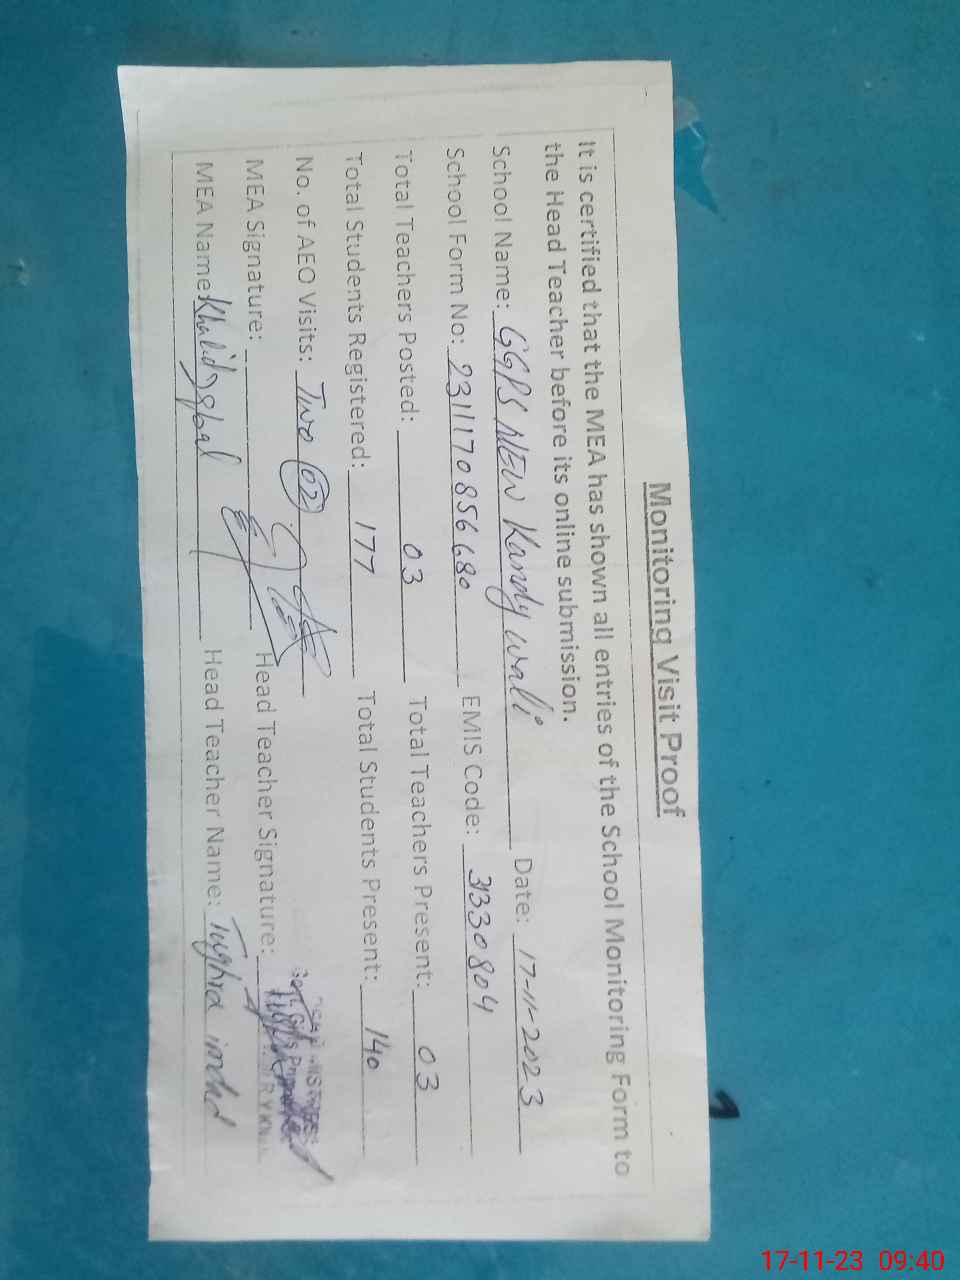 Monitoring Visit Proof
It is certified that the MEA has shown all entries of the School Monitoring Form to
the Head Teacher before its online submission.
School Name: GGPS NEW Kandy wali Date: 17-11-2023
School Form No: 2311170856680 EMIS Code: 31330804
Total Teachers Posted: 03 Total Teachers Present: 03
Total Students Registered: 177 Total Students Present: 140
No. of AEO Visits: Two (02)
MEA Signature: Head Teacher Signature:
MEA Name: Khalid Iqbal Head Teacher Name: Tughra
17-11-23 09:40